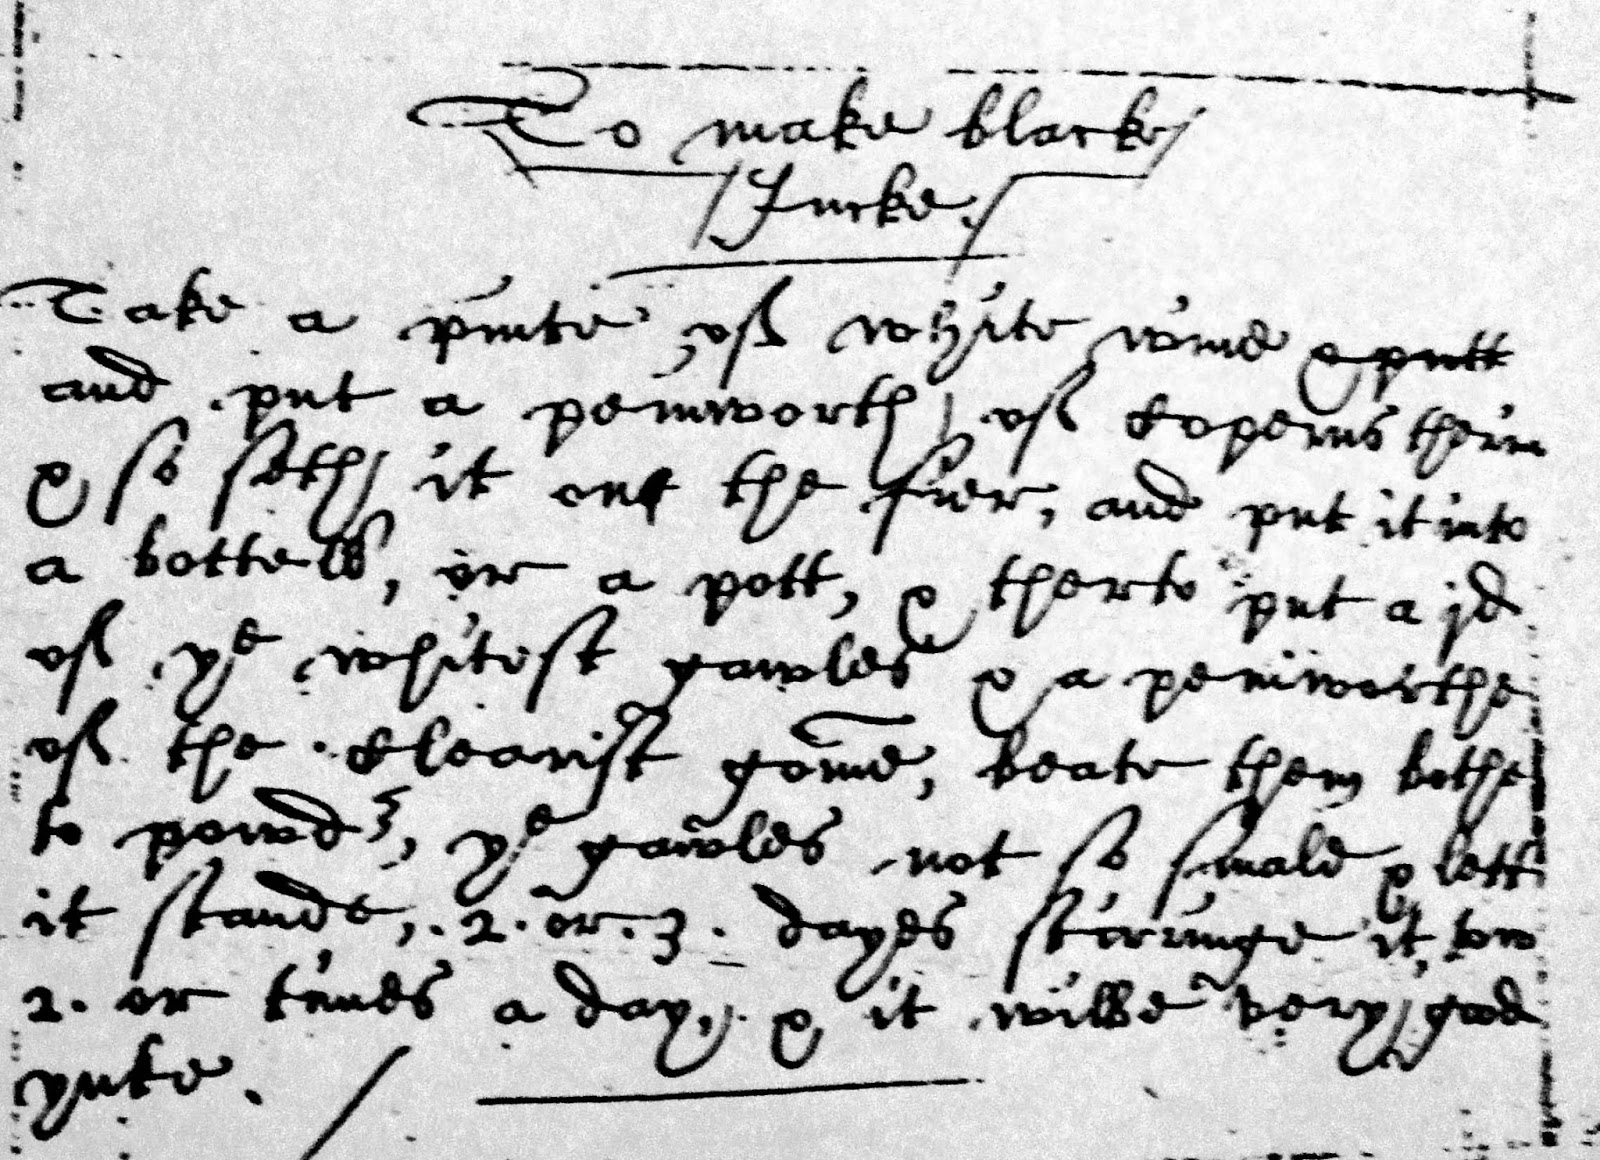 To make blacke
Incke.
Take a pinte off white wine & putt
and put a peniworth off Coperus therin
& so seth it on the fier, and put it into
a bottell, or a pott, & therto put a jd
off ye whitest gawles & a peniworthe
off the Clearist gome, beate them bothe
to powder, ye gawles not so smale & lett
it stande, .2. or .3. dayes stirringe it
2. or times a day, & it wilbe very good
ynke.